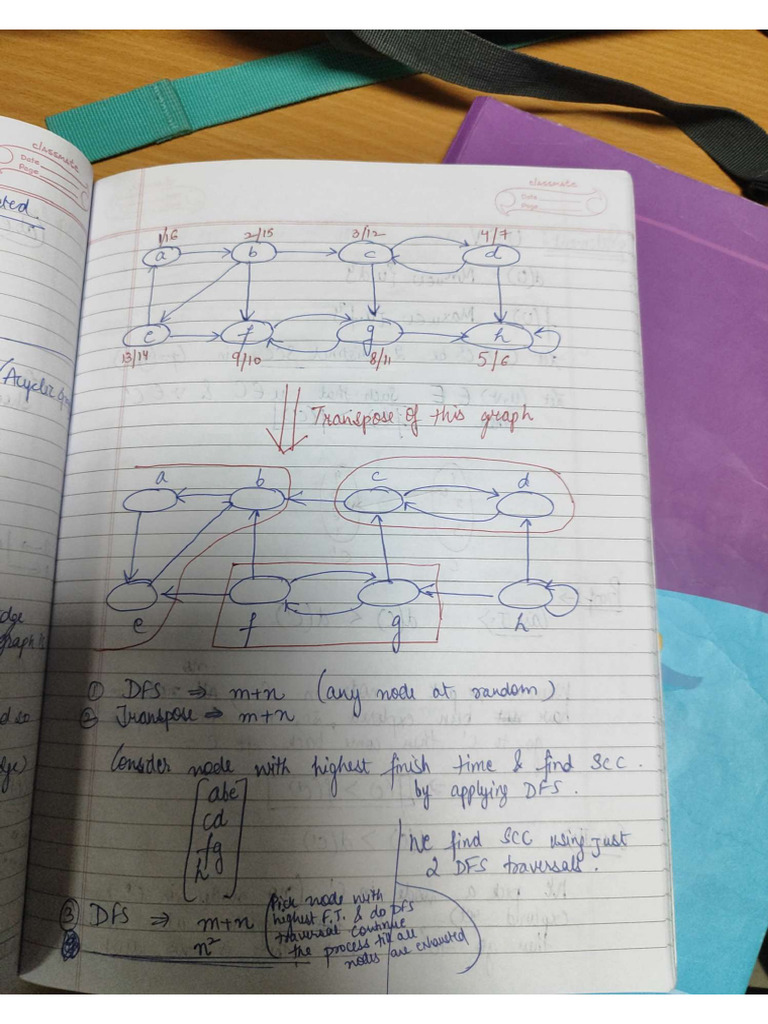 classmate
Date
Page
cted.
(Acyclic
dge
graph is
d so
dge)
classmate
Date
Page
1/16 2/15 3/12 4/7
a b c d
e f g h
13/14 9/10 8/11 5/6
Transpose of this graph
a b c d
e f g h
① DFS ⇒ m+n (any node at random)
② Transpose ⇒ m+n
Consider node with highest finish time & find SCC.
by applying DFS.
abe
cd
fg
h
We find SCC using just
2 DFS traversals.
③ DFS ⇒ m+n
n²
Pick node with
highest F.T. & do DFS
traversal continue
the process till all
nodes are exhausted